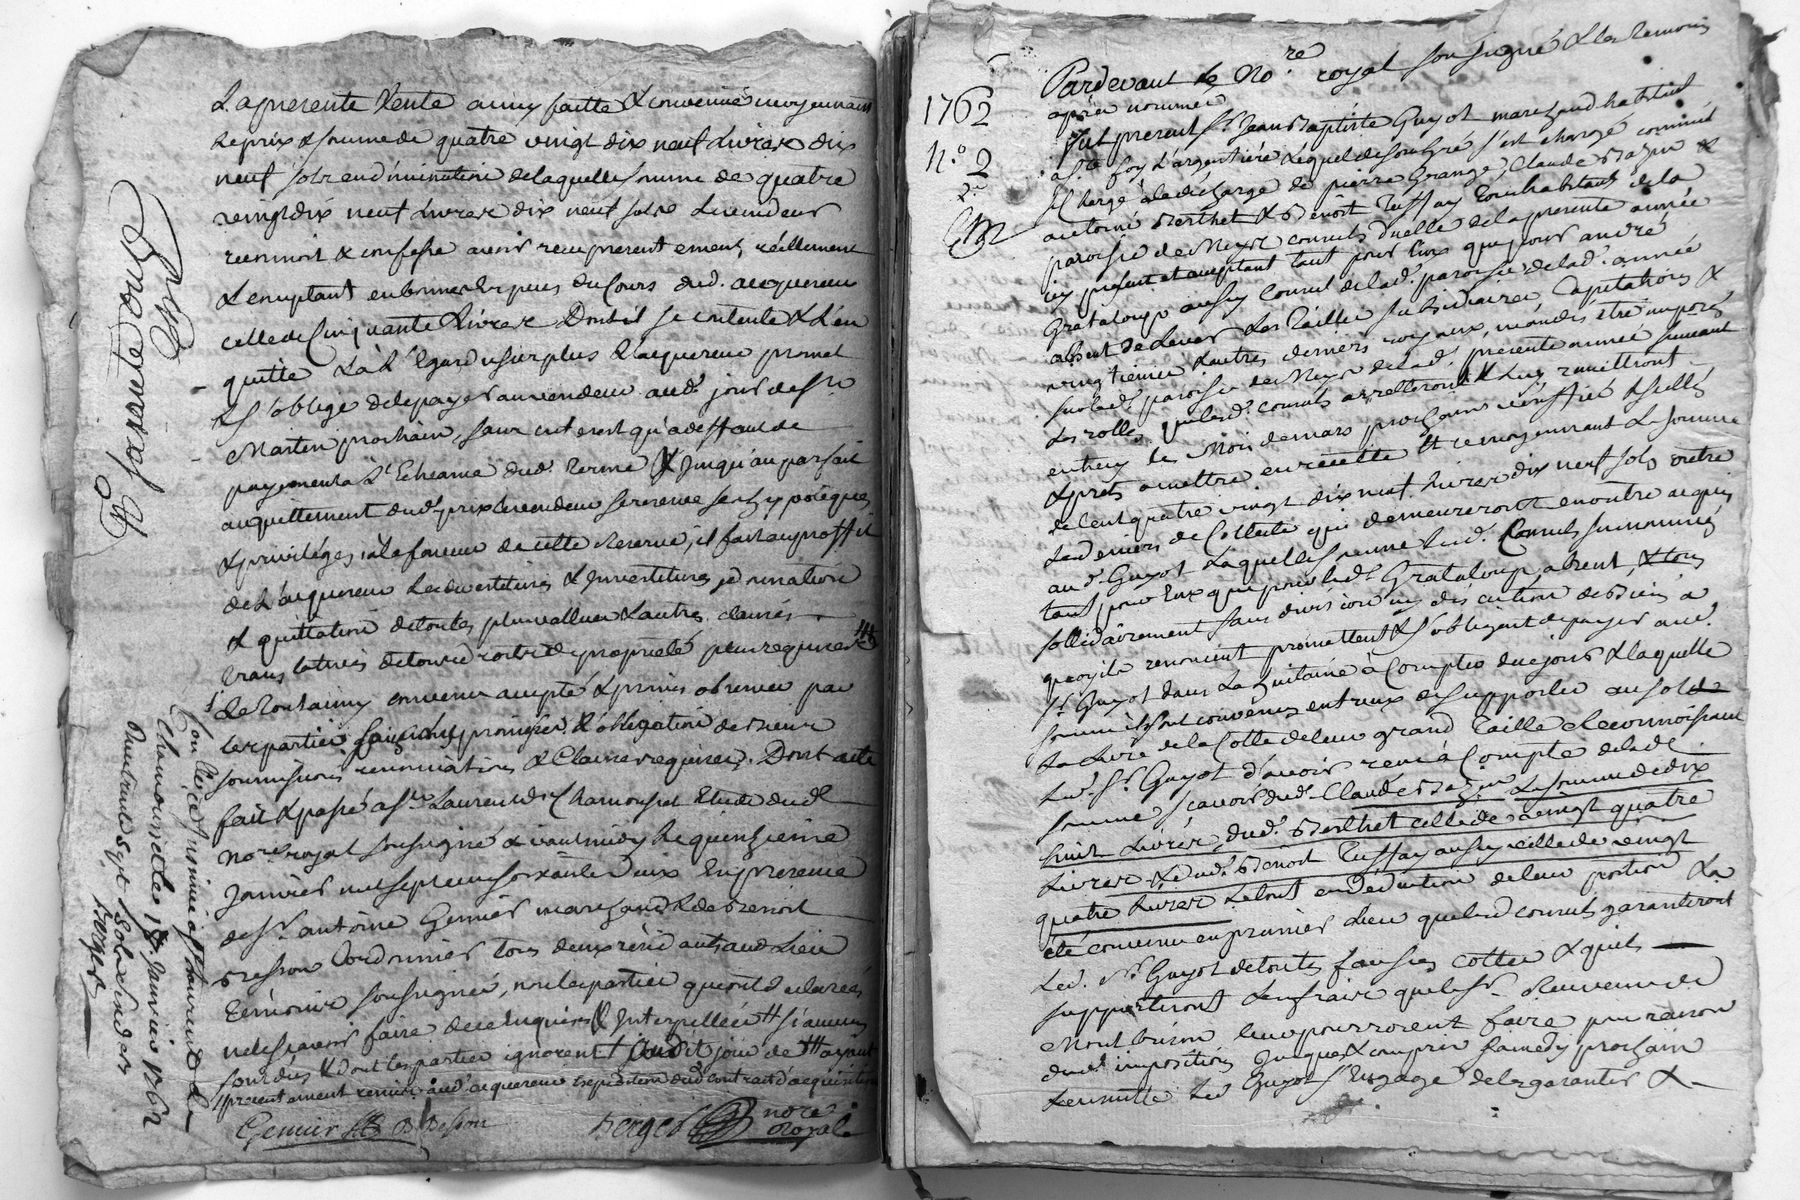 La presente Vente ainsy faitte & convenue moyennant
le prix & somme de quatre vingt dix neuf Livres dix
neuf sols en diminution de laquelle somme de quatre
vingt dix neuf Livres dix neuf sols Le vendeur
reconnoit & confesse avoir reçu presentement, réellement
& comptant en bonnes Especes du Cours dud. acquereur
celle de Cinquante Livres Dont il se contente & L'en
quitte La L'Egard du surplus L'acquereur promet
& s'oblige de le payer au vendeur aud. jour de St.
Martin prochain, sans interest qu'a deffaut de
payement à L'Echeance dud. terme & jusqu'au parfait
acquittement dud. prix le vendeur se reserve ses hypoteques
& privilèges, à la faveur de cette reserve, il fait au proffit
de L'acquereur Les devestitures & Investitures
& quittation de toutes plus vallues & autres clauses
translatives de tous droits de propriété plus requises
De tout ainsy convenu accepté & promis observer par
les parties sous leurs promesses & obligation de Biens
soumissions renonciations & Clauses requises. Dont acte
fait & passé a St. Laurent de Chamousset Etude dud.
Nore. royal soussigné & avant midy le quinzieme
Janvier mil sept cens soixante Deux En presence
de Sr. antoine Genier marchand & de Benoit
Besson Cordonnier tous deux resid. aud. Lieu
Témoins soussignés, non les parties qui ont declaré
ne le sçavoir faire de ce Enquises & Interpellées
sommées & dont les parties ignorent
presentement remis aud. acquereur Expedition dud. contrat d'acquisition
Genier B Besson Berger nore royal
soixante onze
Con lle & insinué a St. Laurent de
Chamoussette le 18e. Janvier 1762
Berger
1762
N.o 2
Pardevant le Nore. royal soussigné & les temoins
après nommés
fut present Sr. Jean Baptiste Guyot marchand habitant
a Ste. foy L'argentière Lequel de son gré s'est chargé comme il
se Charge a la décharge de pierre Grange, Claude Bazin &
antoine Berthet & Benoit Tussay tous habitants de la
paroisse de Meys consuls d'icelle de la presente année
icy present et acceptant tant pour Eux que pour andré
Grataloup aussy Consul de lad. paroisse de lad. année
absent de Lever Les Tailles subsidiaires, Capitations &
vingtiemes & autres deniers royaux, mandés être imposés
sur lad. paroisse de Meys de lad. presente année suivant
Les rolles que lesd. consuls & Luy remettront
entre cy Le Mois de mars prochain vériffiés & scellés
& prets a mettre en recette Et ce moyennant La somme
de Cent quatre vingt dix neuf Livres dix neuf sols outre
Les deniers de Collecte qui demeureront en outre acquis
aud. Guyot Laquelle somme Lesd. Consuls susnommés
tant pour Eux que pour led. Grataloup absent, & tous
sollidairement sans division ny discution de Biens a
quoy ils renoncent promettent & s'obligent de payer aud.
Sr. Guyot dans La huitaine à Compter de ce jour & laquelle
somme ils sont convenus entr'eux de supporter au sol
La Livre de la Cotte de leur grand Taille Reconnoissant
Led. Sr. Guyot d'avoir reçu à Compte de lad.
somme sçavoir dud. Claude Bazin La somme de dix
huit Livres, dud. Berthet celle de vingt quatre
Livres & dud. Benoit Tussay aussy celle de vingt
quatre Livres Le tout en déduction de leur portion La
été convenu en premier Lieu que lesd. consuls garantiront
Led. Sr. Guyot de toutes fausses cottes & qu'ils
supporteront Les fraix que le Sr. Receveur de
Montbrison Leur pourroient faire pour raison
dud. imposition jusques & compris samedy prochain
Led. Guyot s'Engage de les garantir &